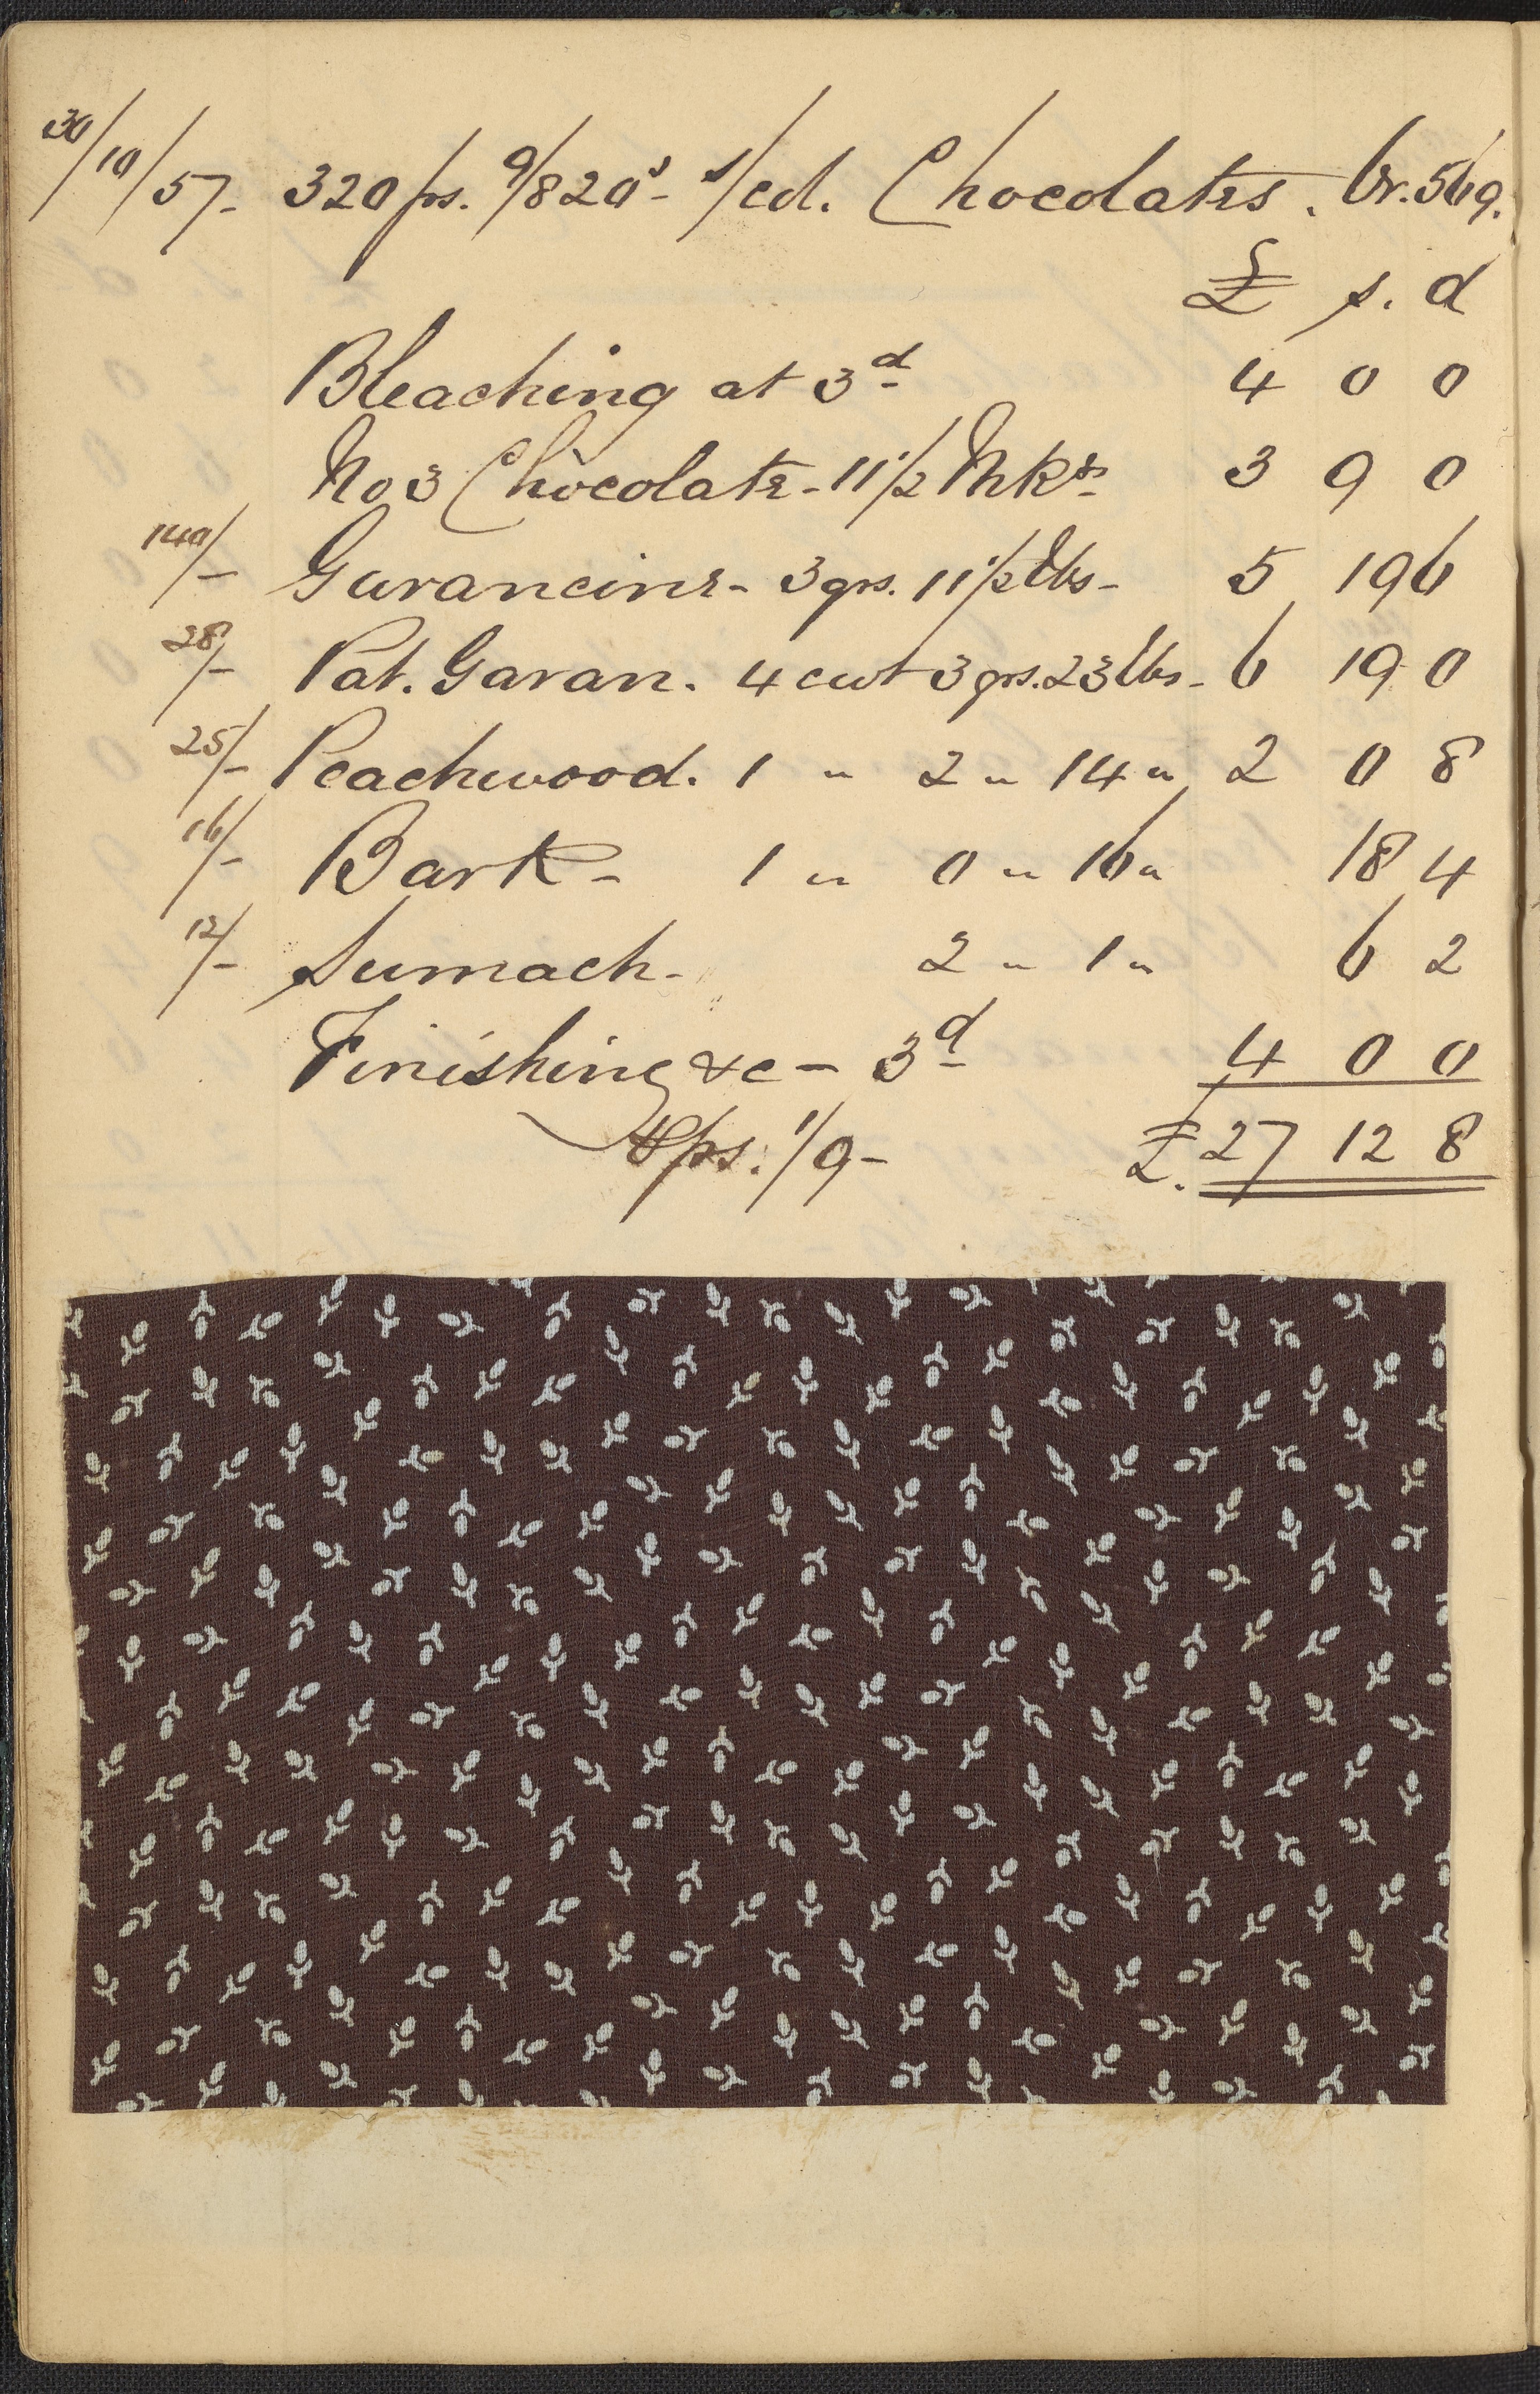 30/10/57- 320 ps. 9/8 20s - 1/cd. Chocolates. Br. 569.
£ s. d
Bleaching at 3d 4 0 0
No 3 Chocolate - 11 1/2 Mks 3 9 0
140/- Garancine - 3 qrs. 11 1/2 lbs - 5 19 6
28/- Pat. Garan. 4 cwt 3 qrs. 23 lbs - 6 19 0
25/- Peachwood. 1 " 2 " 14 " 2 0 8
16/- Bark - 1 " 0 " 16 " 18 4
12/- Sumach - 2 " 1 " 6 2
Finishing &c - 3d 4 0 0
ps. 1/9 - £. 27 12 8